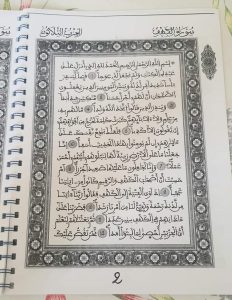 سورة الكهف
الحزب الثلاثون
بسم الله الرحمن الرحيم الحمد لله الذي أنزل على
عبده الكتاب ولم يجعل له عوجا قيما لينذر
بأسا شديدا من لدنه ويبشر المؤمنين الذين يعملون
الصالحات أن لهم أجرا حسنا ماكثين فيه أبدا
وينذر الذين قالوا اتخذ الله ولدا ما لهم به
من علم ولا لآبائهم كبرت كلمة تخرج من
أفواههم إن يقولون إلا كذبا فلعلك باخع نفسك
على آثارهم إن لم يؤمنوا بهذا الحديث أسفا إنا
جعلنا ما على الأرض زينة لها لنبلوهم أيهم أحسن
عملا وإنا لجاعلون ما عليها صعيدا جرزا أم
حسبت أن أصحاب الكهف والرقيم كانوا من آياتنا
عجبا إذ أوى الفتية إلى الكهف فقالوا ربنا آتنا
من لدنك رحمة وهيئ لنا من أمرنا رشدا فضربنا على
آذانهم في الكهف سنين عددا ثم بعثناهم لنعلم
أي الحزبين أحصى لما لبثوا أمدا نحن نقص عليك
2